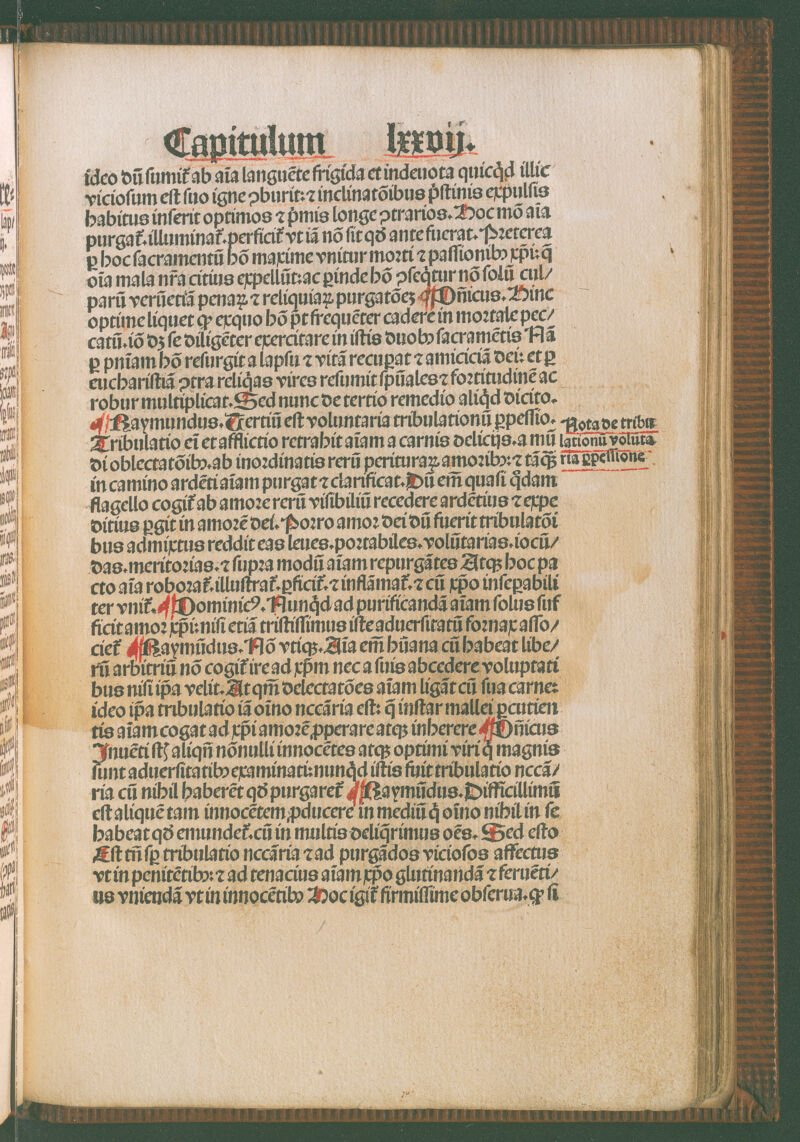 Capitulum lxxvij.
ideo dũ sumit᷑ ab aĩa languẽte frigida et indeuota quicq̇d illic
viciosum est suo igne ꝯburit: ⁊ inclinatõibus p̃stinis expulsis
habitus inserit optimos ⁊ p̃mis longe ꝯtrarios. Hoc mõ aĩa
purgat᷑. illuminat᷑. perficit᷑ vt iã nõ sit qd̃ ante fuerat. Preterea
ꝑ hoc sacramentũ hõ maxime vnitur morti ⁊ passionibꝫ xp̃i: q̃
oĩa mala nr̃a citius expellũt: ac ꝑinde hõ ꝯseq̇tur nõ solũ cul/
parũ verũetiã penaꝝ ⁊ reliquiaꝝ purgatõeꝫ ¶ Dñicus. Hinc
optime liquet ꝙ exquo hõ p̃t frequẽter cadere in mortale pec/
catũ. iõ dꝫ se diligẽter exercitare in istis duobꝫ sacramẽtis Nã
ꝑ pnĩam hõ resurgit a lapsu ⁊ vitã recuꝑat ⁊ amiciciã dei: et ꝑ
eucharistiã ꝯtra reliq̇as vires resumit sp̃uales ⁊ fortitudinẽ ac
robur multiplicat. Sed nunc de tertio remedio aliq̇d dicito.
¶ Raymundus. Tertiũ est voluntaria tribulationũ ꝑpessio.
Tribulatio em̃ et afflictio retrahit aĩam a carnis delicijs. a mũ
di oblectatõibꝫ. ab inordinatis rerũ perituraꝝ amoribꝫ: ⁊ tãq̃ꝫ
in camino ardẽti aĩam purgat ⁊ clarificat. Dũ em̃ quasi q̇dam
flagello cogit᷑ ab amore rerũ visibiliũ recedere ardẽtius ⁊ expe
ditius ꝑgit in amorẽ dei. Porro amor dei dũ fuerit tribulatõi
bus admixtus reddit eas leues. portabiles. volũtarias. iocũ/
das. meritorias. ⁊ supra modũ aĩam repurgãtes Atqꝫ hoc pa
cto aĩa roborat᷑. illustrat᷑. ꝑficit᷑. ⁊ inflãmat᷑. ⁊ cũ xp̃o inseꝑabili
ter vnit᷑. ¶ Dominicꝰ. Nunq̇d ad purificandã aĩam solus suf
ficit amor xp̃i: nisi etiã tristissimus iste aduersitatũ fornax asso/
ciet᷑ ¶ Raymũdus. Nõ vtiqꝫ. Aĩa em̃ hũana cũ habeat libe/
rũ arbitriũ nõ cogit᷑ ire ad xp̃m nec a suis abcedere voluptati
bus nisi ip̃a velit. At qm̃ delectatões aĩam ligãt cũ sua carne:
ideo ip̃a tribulatio iã oĩno nccãria est: q̃ instar mallei ꝑcutien
tis aĩam cogat ad xp̃i amorẽ ꝓperare atqꝫ inherere ¶ Dñicus
Inuẽti st̃ aliqñ nõnulli innocẽtes atqꝫ optimi viri q̇ magnis
sunt aduersitatibꝫ examinati: nunq̇d istis fuit tribulatio nccã/
ria cũ nihil haberẽt qd̃ purgaret᷑ ¶ Raymũdus. Difficillimũ
est aliquẽ tam innocẽtem ꝓducere in mediũ q̇ oĩno nihil in se
habeat qd̃ emundet᷑. cũ in multis deliq̇rimus oẽs. Sed esto
Est tñ sp̃ tribulatio nccãria ⁊ ad purgãdos viciosos affectus
vt in penitẽtibꝫ: ⁊ ad tenacius aĩam xp̃o glutinandã ⁊ feruẽti/
us vniendã vt in innocẽtibꝫ Hoc igit᷑ firmissime obserua. ꝙ si
Nota de tribu
lationũ volũta
ria ꝑpessione